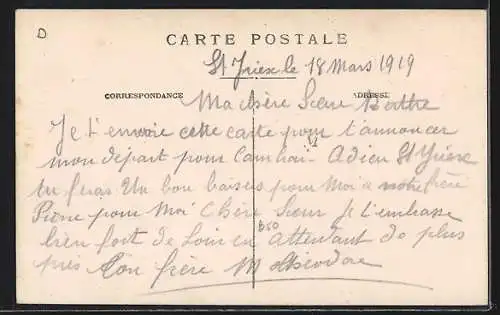 D
CARTE POSTALE
St Yrieix le 18 Mars 1919
CORRESPONDANCE ADRESSE
Ma chère Sœur Berthe
Je t'envoie cette carte pour t'annoncer
mon départ pour Cambrai. Adieu St Yrieix
tu feras Un bon baisers pour Moi a notre frère
Pierre pour Moi Chère Sœur Je t'embrasse
bien fort de Loin en Attendant de plus
près Ton frère M Théodore